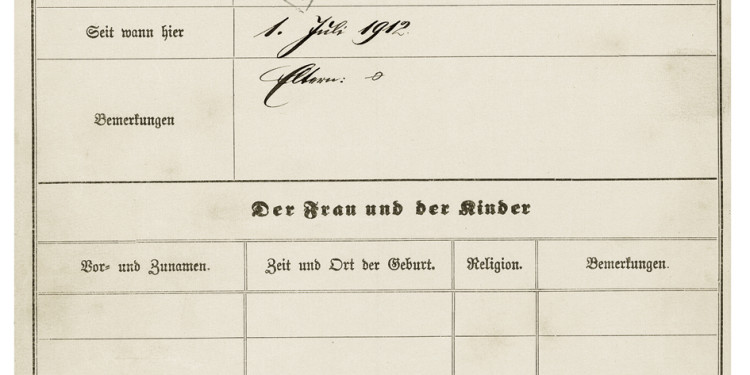 Seit wann hier 1. Juli 1912.
Bemerkungen Eltern: o
Der Frau und der Kinder
Vor- und Zunamen. Zeit und Ort der Geburt. Religion. Bemerkungen.